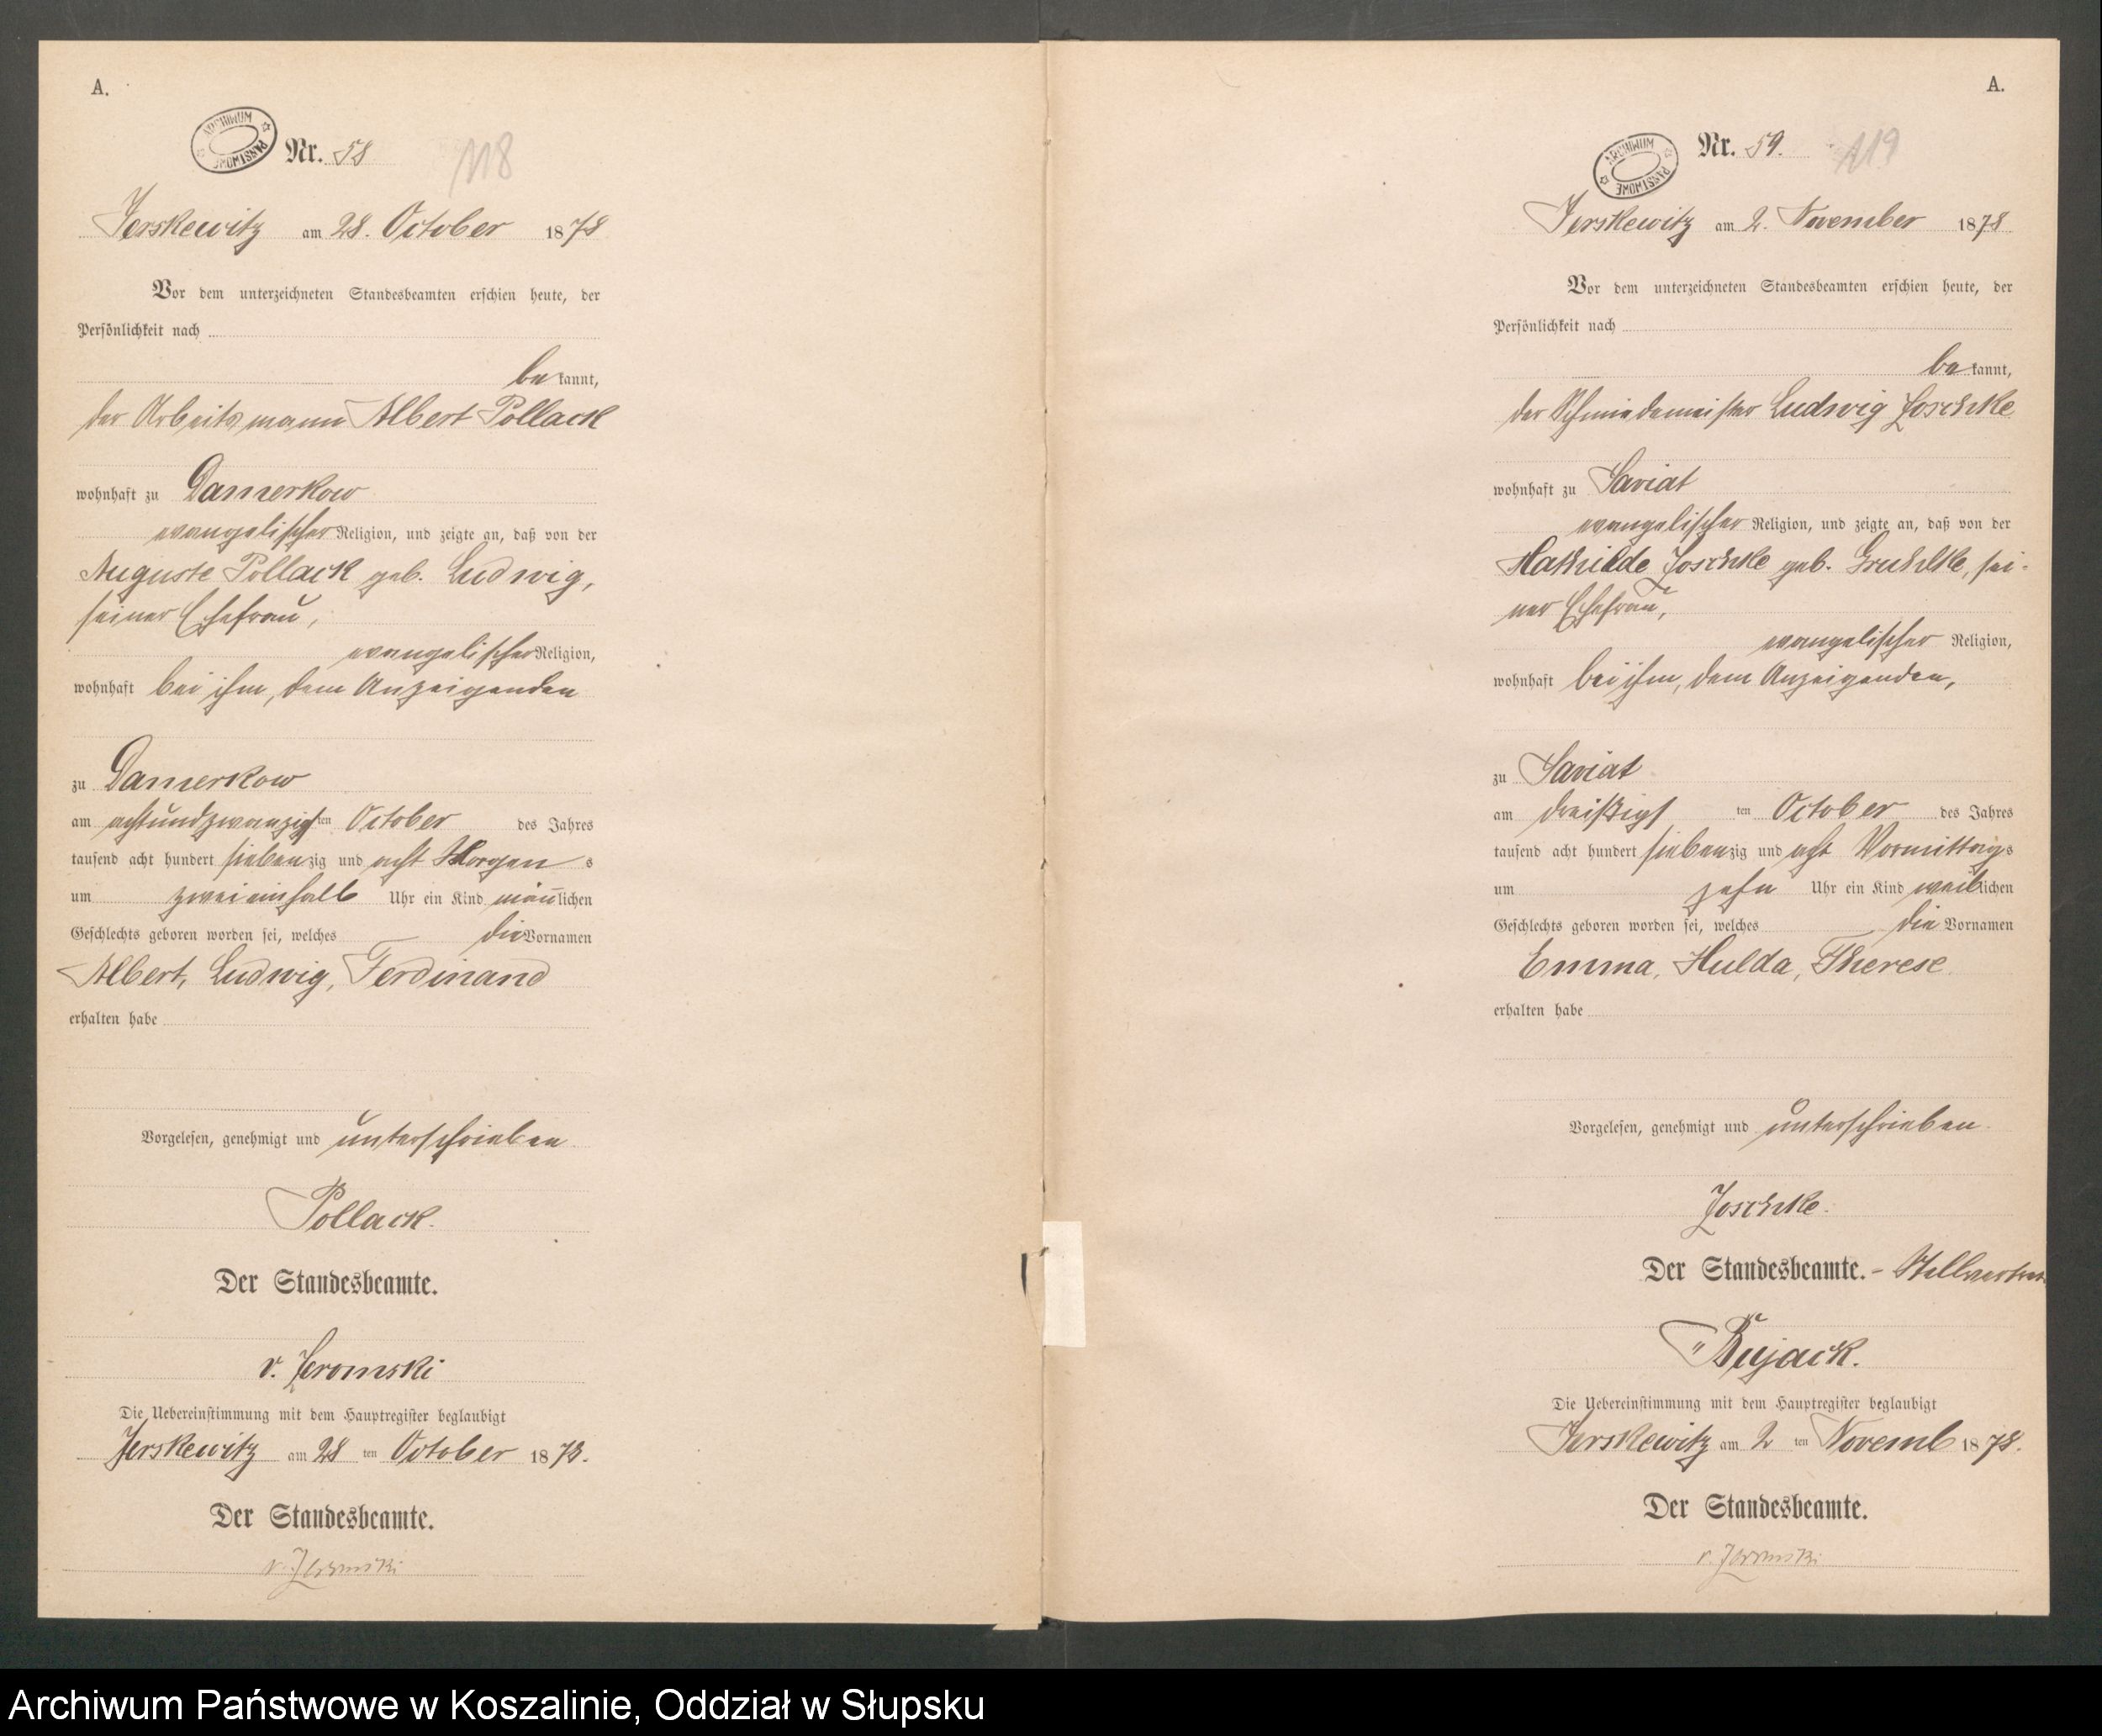 A.
ARCHIWUM PAŃSTWOWE
Nr. 58
118
Jerskewitz am 28. October 1878
Vor dem unterzeichneten Standesbeamten erschien heute, der
Persönlichkeit nach
bekannt,
der Arbeitsmann Albert Pollack
wohnhaft zu Damerkow
evangelischer Religion, und zeigte an, daß von der
Auguste Pollack geb. Ludwig,
seiner Ehefrau,
evangelischer Religion,
wohnhaft bei ihm, dem Anzeigenden
zu Damerkow
am achtundzwanzigsten October des Jahres
tausend acht hundert siebenzig und acht Morgens
um zweieinhalb Uhr ein Kind männlichen
Geschlechts geboren worden sei, welches die Vornamen
Albert, Ludwig, Ferdinand
erhalten habe
Vorgelesen, genehmigt und unterschrieben
Pollack.
Der Standesbeamte.
v. Jeromski
Die Uebereinstimmung mit dem Hauptregister beglaubigt
Jerskewitz am 28 ten October 1878.
Der Standesbeamte.
v. Jeromski
A.
ARCHIWUM PAŃSTWOWE
Nr. 59.
119
Jerskewitz am 2. November 1878
Vor dem unterzeichneten Standesbeamten erschien heute, der
Persönlichkeit nach
bekannt,
der Schmiedemeister Ludwig Joschke
wohnhaft zu Saviat
evangelischer Religion, und zeigte an, daß von der
Mathilde Joschke geb. Gruhlke, sei-
ner Ehefrau,
evangelischer Religion,
wohnhaft bei ihm, dem Anzeigenden,
zu Saviat
am dreißigsten October des Jahres
tausend acht hundert siebenzig und acht Vormittags
um zehn Uhr ein Kind weiblichen
Geschlechts geboren worden sei, welches die Vornamen
Emma, Hulda, Therese
erhalten habe
Vorgelesen, genehmigt und unterschrieben
Joschke.
Der Standesbeamte. - Stellvertreter
Bujack.
Die Uebereinstimmung mit dem Hauptregister beglaubigt
Jerskewitz am 2 ten Novemb 1878.
Der Standesbeamte.
v. Jeromski
Archiwum Państwowe w Koszalinie, Oddział w Słupsku